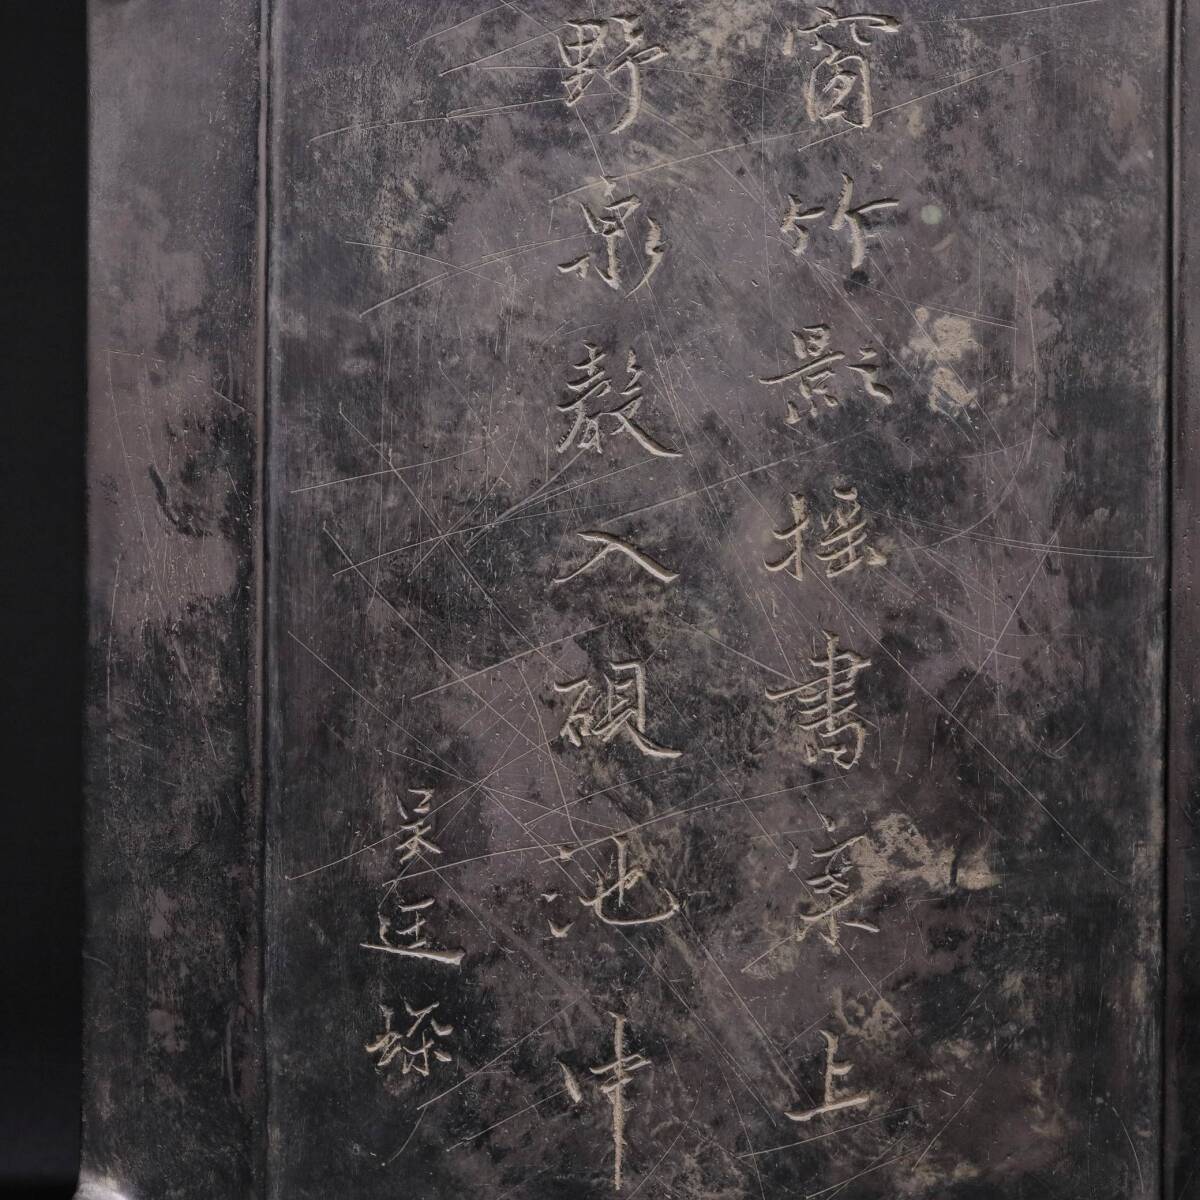 窗竹影搖書案上
野泉聲入硯池中
吳廷琛